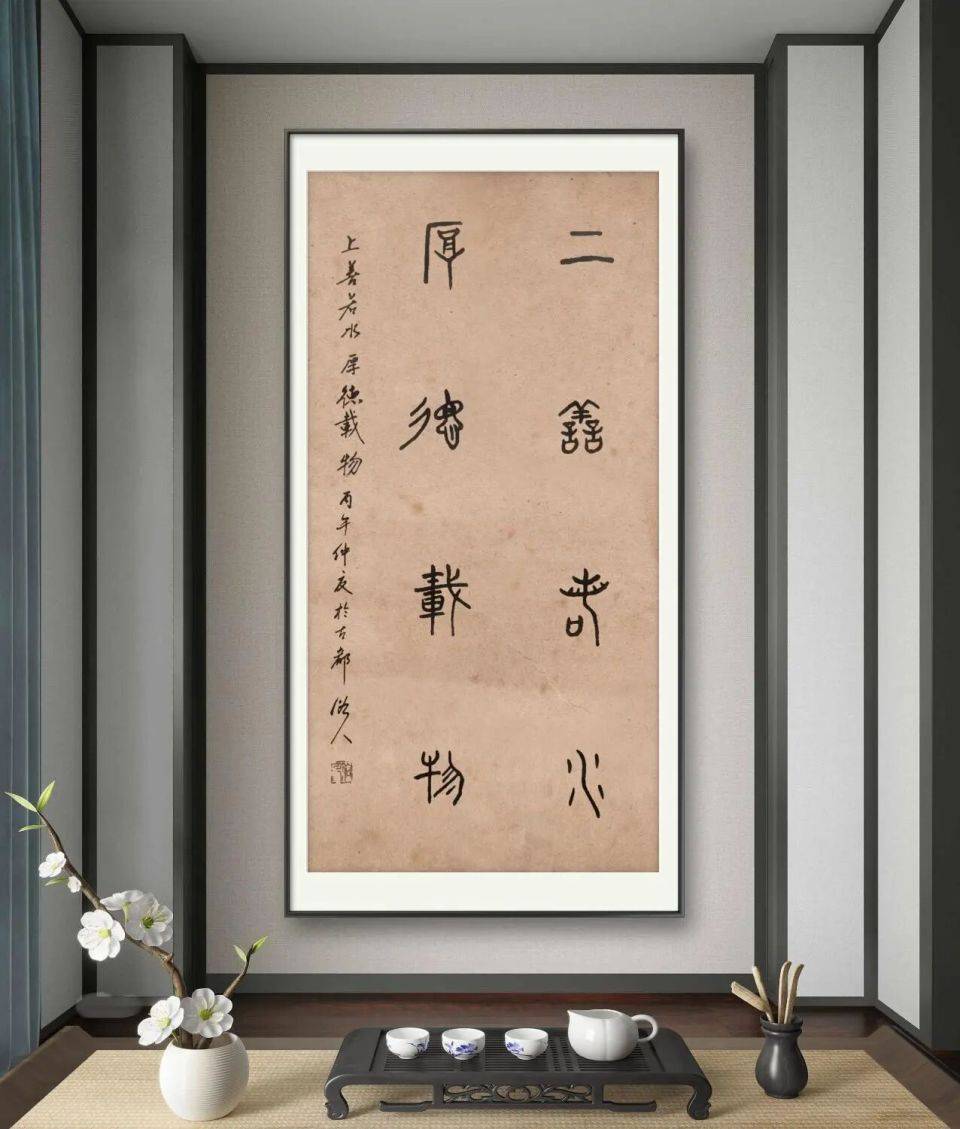 上善若水
厚德載物
上善若水厚德載物丙午仲夏於古都